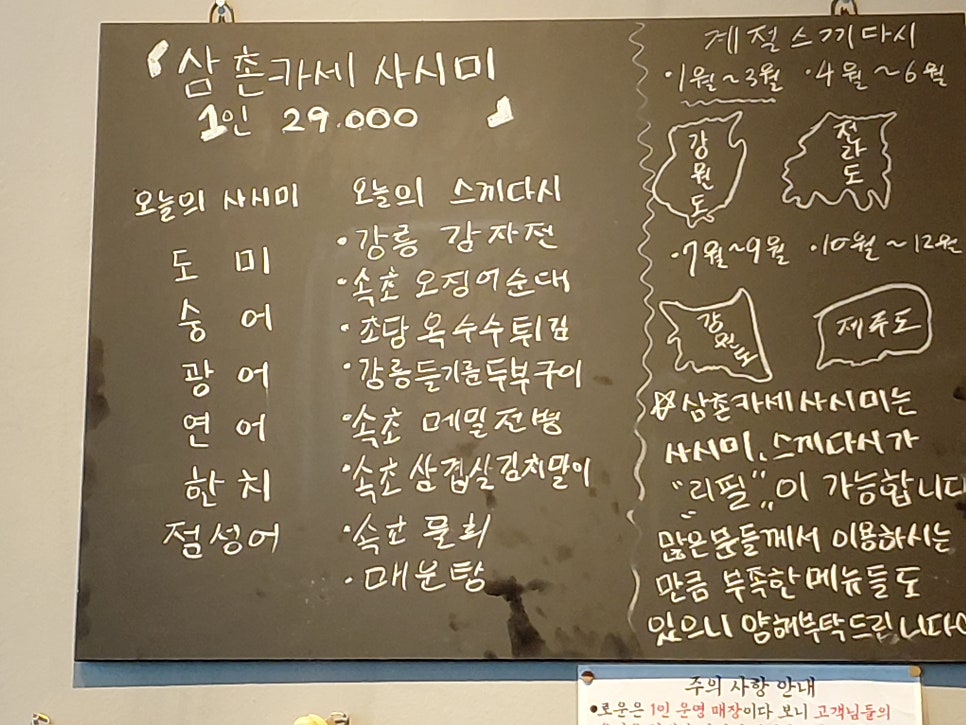 삼촌카세 사시미
1인 29.000
오늘의 사시미
도미
숭어
광어
연어
한치
점성어
오늘의 스끼다시
·강릉 감자전
·속초 오징어순대
·초당 옥수수튀김
·강릉들기름두부구이
·속초 메밀전병
·속초삼겹살김치말이
·속초 물회
·매운탕
계절스끼다시
·1월~3월 ·4월~6월
강원도
전라도
·7월~9월 ·10월~12월
강원도
제주도
☆삼촌카세사시미는
사시미, 스끼다시가
"리필"이 가능합니다
많은분들께서 이용하시는
만큼 부족한 메뉴들도
있으니 양해부탁드린니다
주의 사항 안내
•로운은 1인 운영 매장이다 보니 고객님들의